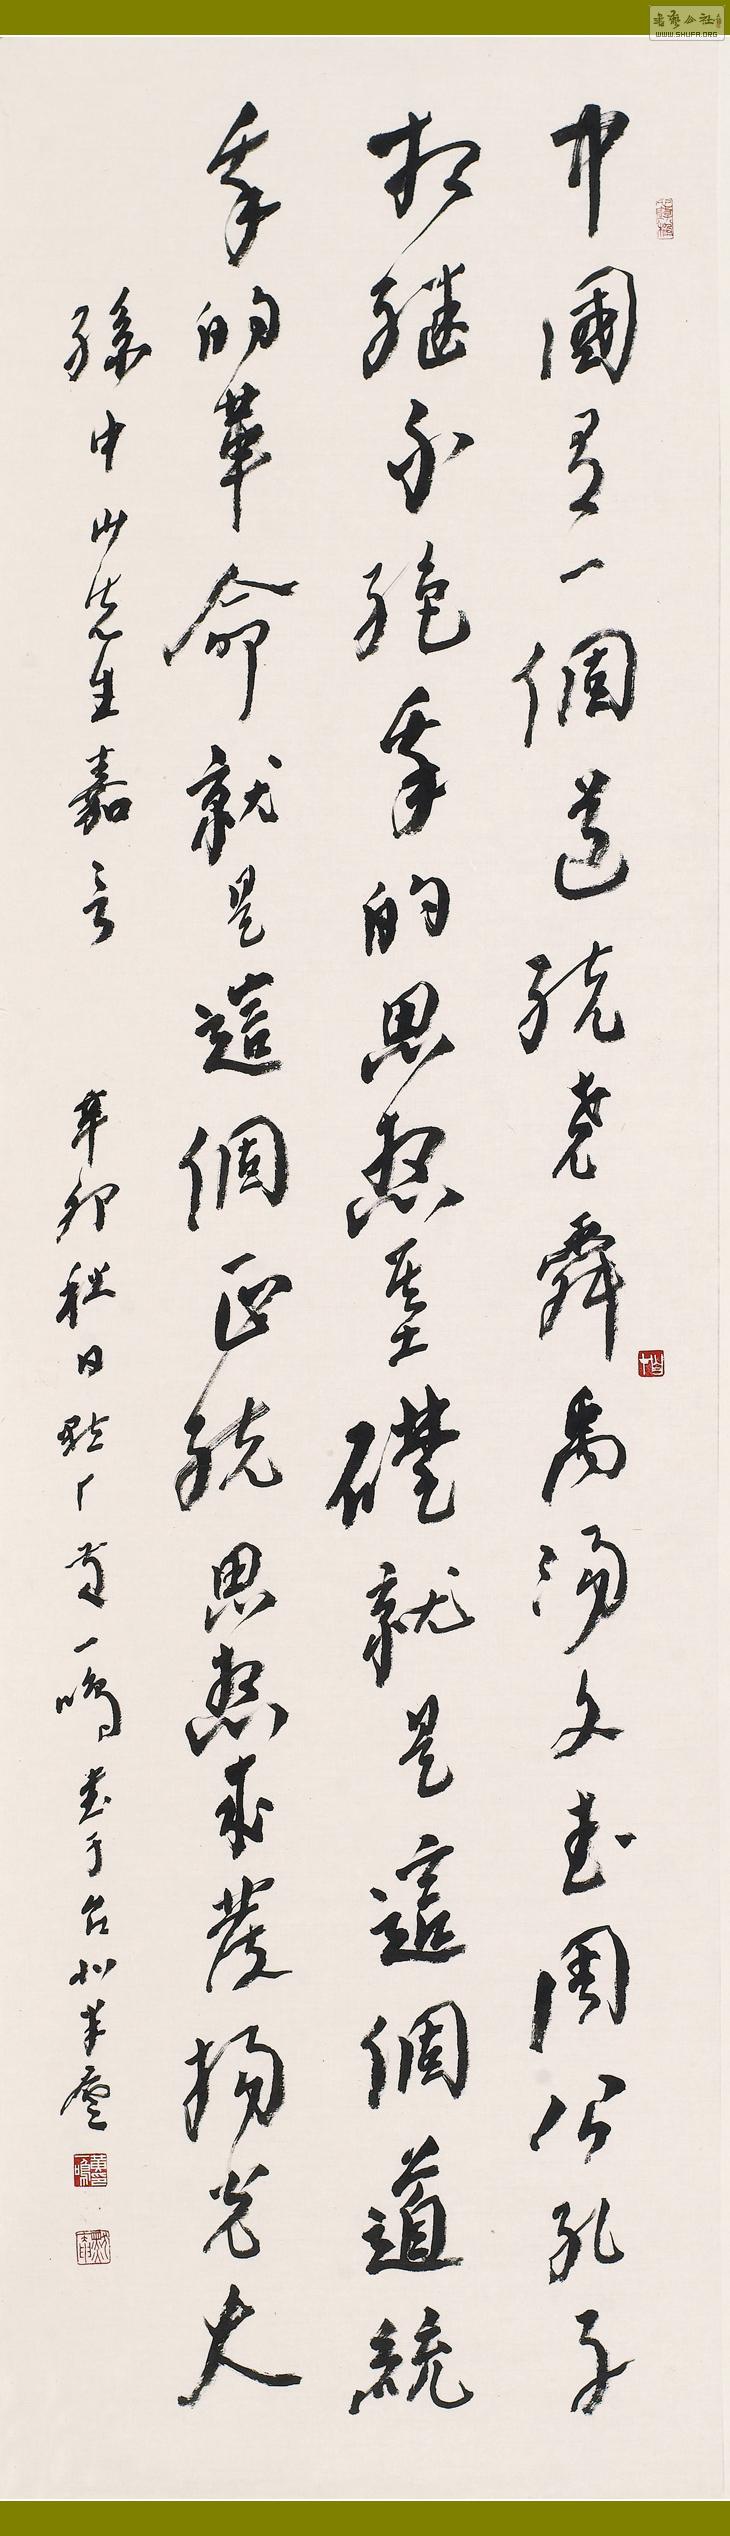 中國有一個道統堯舜禹湯文武周公孔子
相繼不絕我的思想基礎就是這個道統
我的革命就是這個正統思想來發揚光大
孫中山先生嘉言 辛卯秋日 黃一鳴書于台北
WWW.SHUFA.ORG